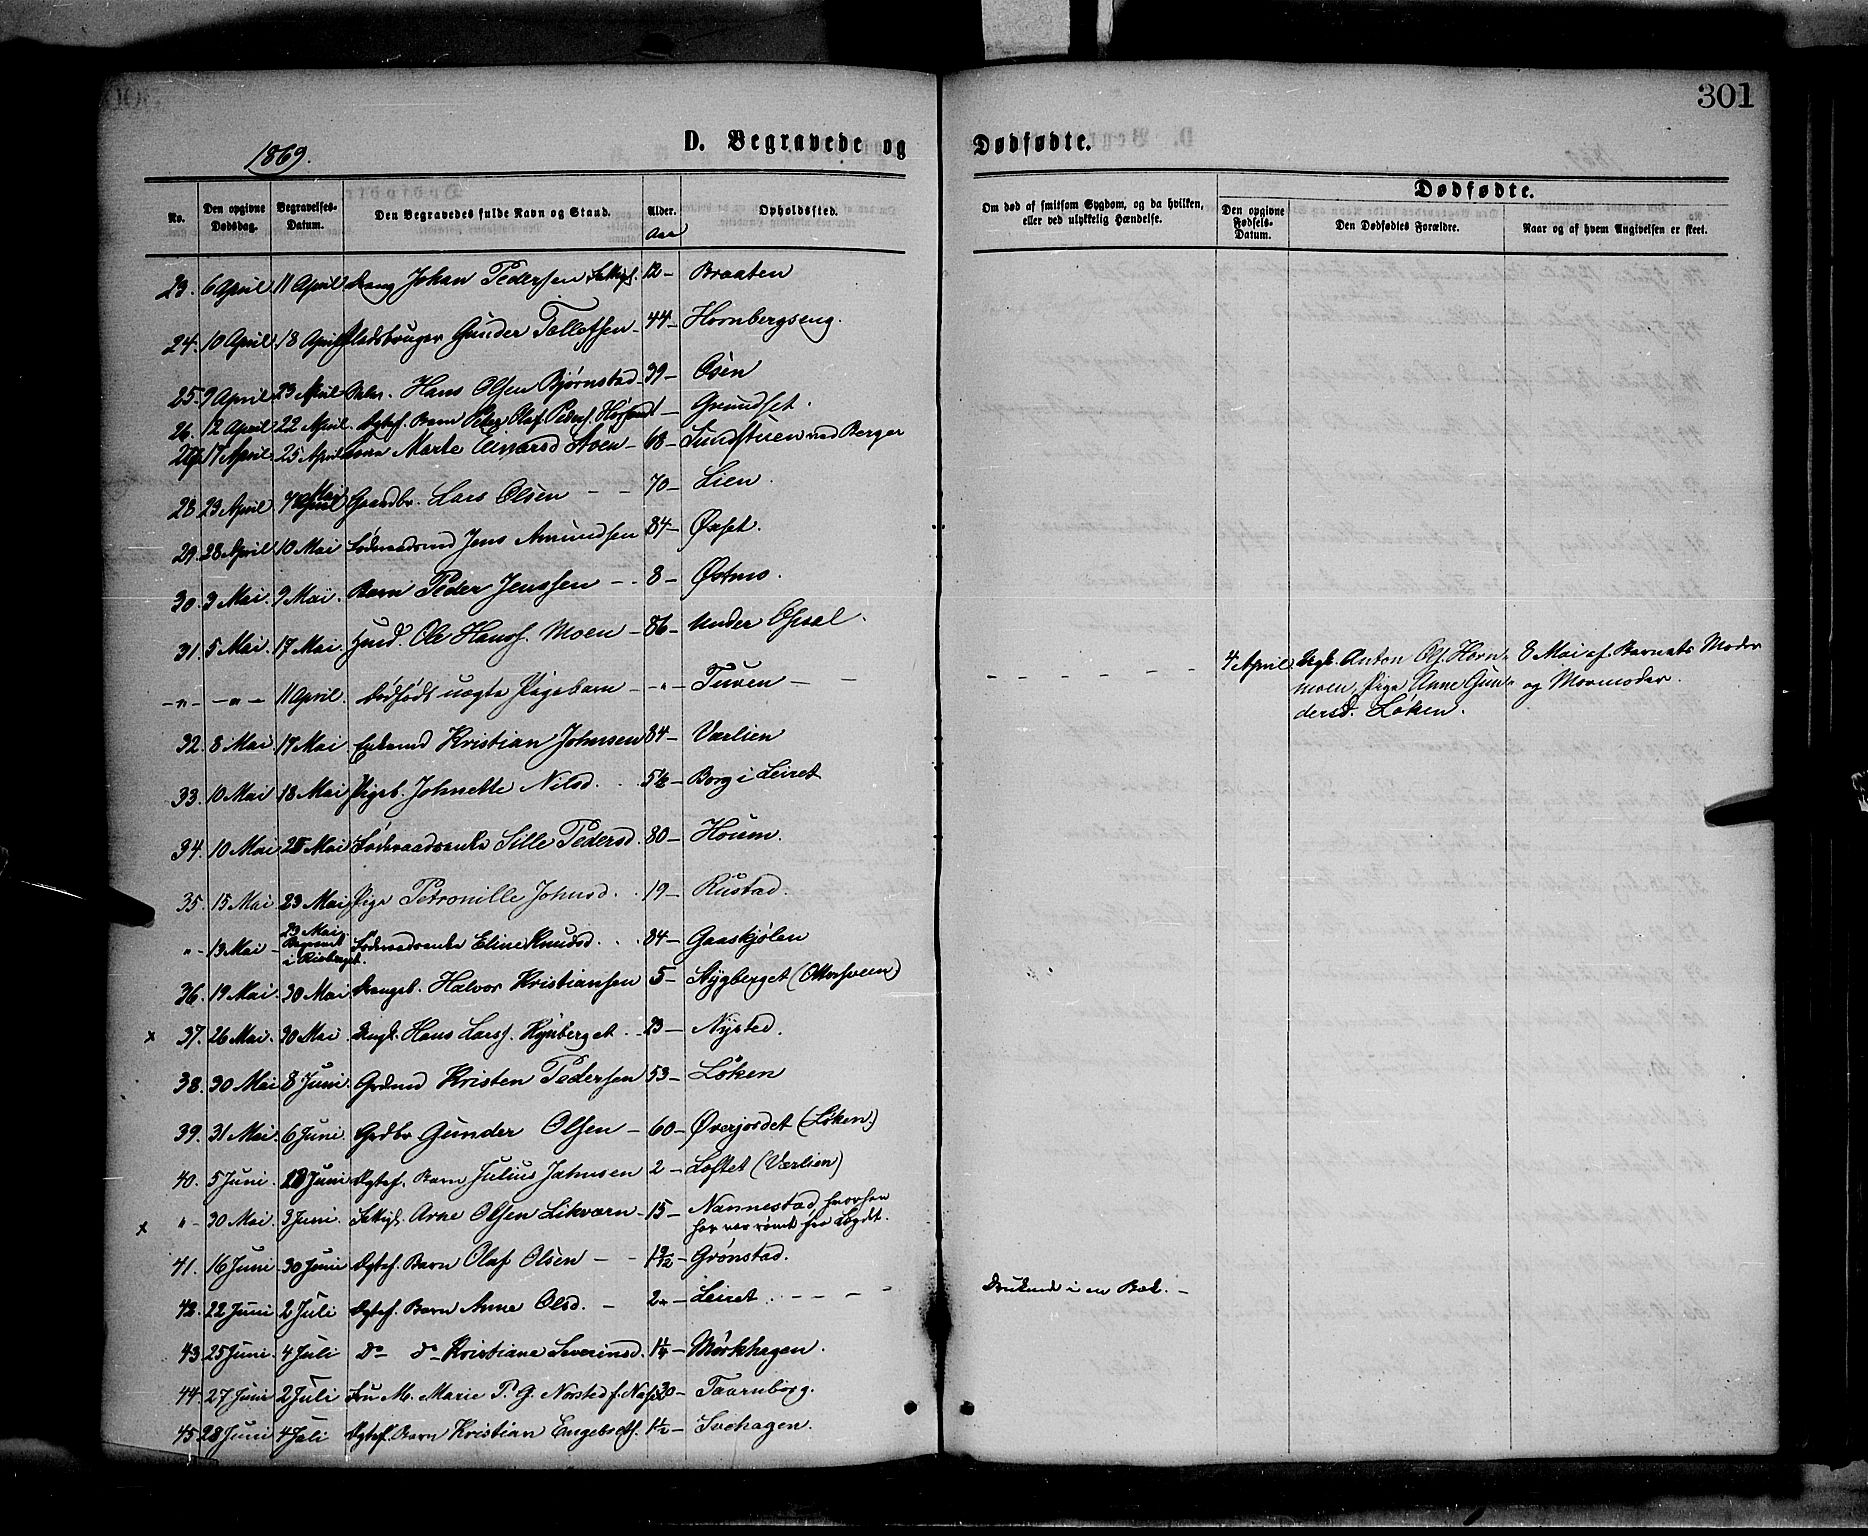 301
D. Begravede og Dødfødte.
1869.
Dødfødte.
No. Den opgivne Dødsdag. Begravelses-Datum. Den Begravedes fulde Navn og Stand. Alder. Opholdssted. Om død af smitsom Sygdom, og da hvilken, eller ved ulykkelig Hændelse. Den opgivne Fødsels-Datum. Den Dødfødtes Forældre. Naar og af hvem Angivelsen er skeet.
Aar
23. 6 April 11 April Dreng Johan Pedersen 12 – Braaten
24. 10 April. 18 April Pladsbruger Gunder Tollefsen – 44 – Hornbergseng.
25. 9 April 23 April Hans Olsen Bjørnstad – 39 – Osen
26. 12 April 22 April. Ægtef. Barn Peder Olaf Peders. – Grundset.
27. 17 April. 25 April Marte Einarsd Aoen – 68 – Sundstuen ved Berger
28 29 April 7 Mai Gaardbr. Lars Olsen – – 70 – Lien.
29. 28 April 10 Mai Føderaadsmd Jens Amundsen 84 – Øxset.
30. 3 Mai. 9 Mai. Barn Peder Jenssen – – 8 – Østmo.
31. 5 Mai. 17 Mai. Ole Hanss. Moen – 86 – under Opsal.
– " – – " – 11 April. Dødfødt uægte Pigebarn – – " – Tuven – – – – – 4 April Ungk. Anton Ols. Horn- 8 Mai af Barnets Moder
moen, Pige Anne Gun- og Mormoder.
dersd. Løken.
32. 8 Mai 17 Mai Enkemd Kristian Johnsen 84 – Værlien
33. 10 Mai 18 Mai Pigeb. Johnette Nilsd. 5½ – Borg i Leiret
34. 10 Mai 25 Mai Føderaadsenke Sille Pedersd. 80 – Houm.
35. 15 Mai 23 Mai Pige Petronille Johnsd. 19 – Rustad.
" – 13 Mai – 23 Mai Begravet i Risberget. Føderaadsenke Eline Knudsd. 84 – Gaaskjølen
36. 19 Mai 30 Mai Drengeb. Halvor Kristiansen 5 – Stygberget (Ottersveen)
x 37. 26 Mai. 30 Mai Ungk. Hans Larss. Kynberget 23 – Nysted.
38. 30 Mai 8 Juni Grdmd Kristen Pedersen 53 – Løken
39. 31 Mai. 6 Juni. Grdbr Gunder Olsen – 60 – Øverjordet (Løken)
40. 5 Juni. Juni Ægtef. Barn Julius Johnsen 2 – Loftet (Værlien)
x " – 30 Mai. 3 Juni. Arne Olsen Likværn – 15 – Nannestad, hvorhen
han var rømt fra Lægdet.
41. 16 Juni 30 Juni Ægtef. Barn Olaf Olsen – – Grønstad.
42. 22 Juni 2 Juli Ægtef. Barn Anne Olsd. – 2 – Leiret. – – – – Druknet i en Bæk. –
43 25 Juni. 4 Juli Do do Kristiane Severinsd. 1¼ – Mørkhagen.
44. 27 Juni 2 Juli Fru M. Marie P. G. Norsted f. 30 – Taarnborg.
45. 28 Juni 4 Juli Ægtef. Barn Kristian Engebrets. 1½ – Svehagen.